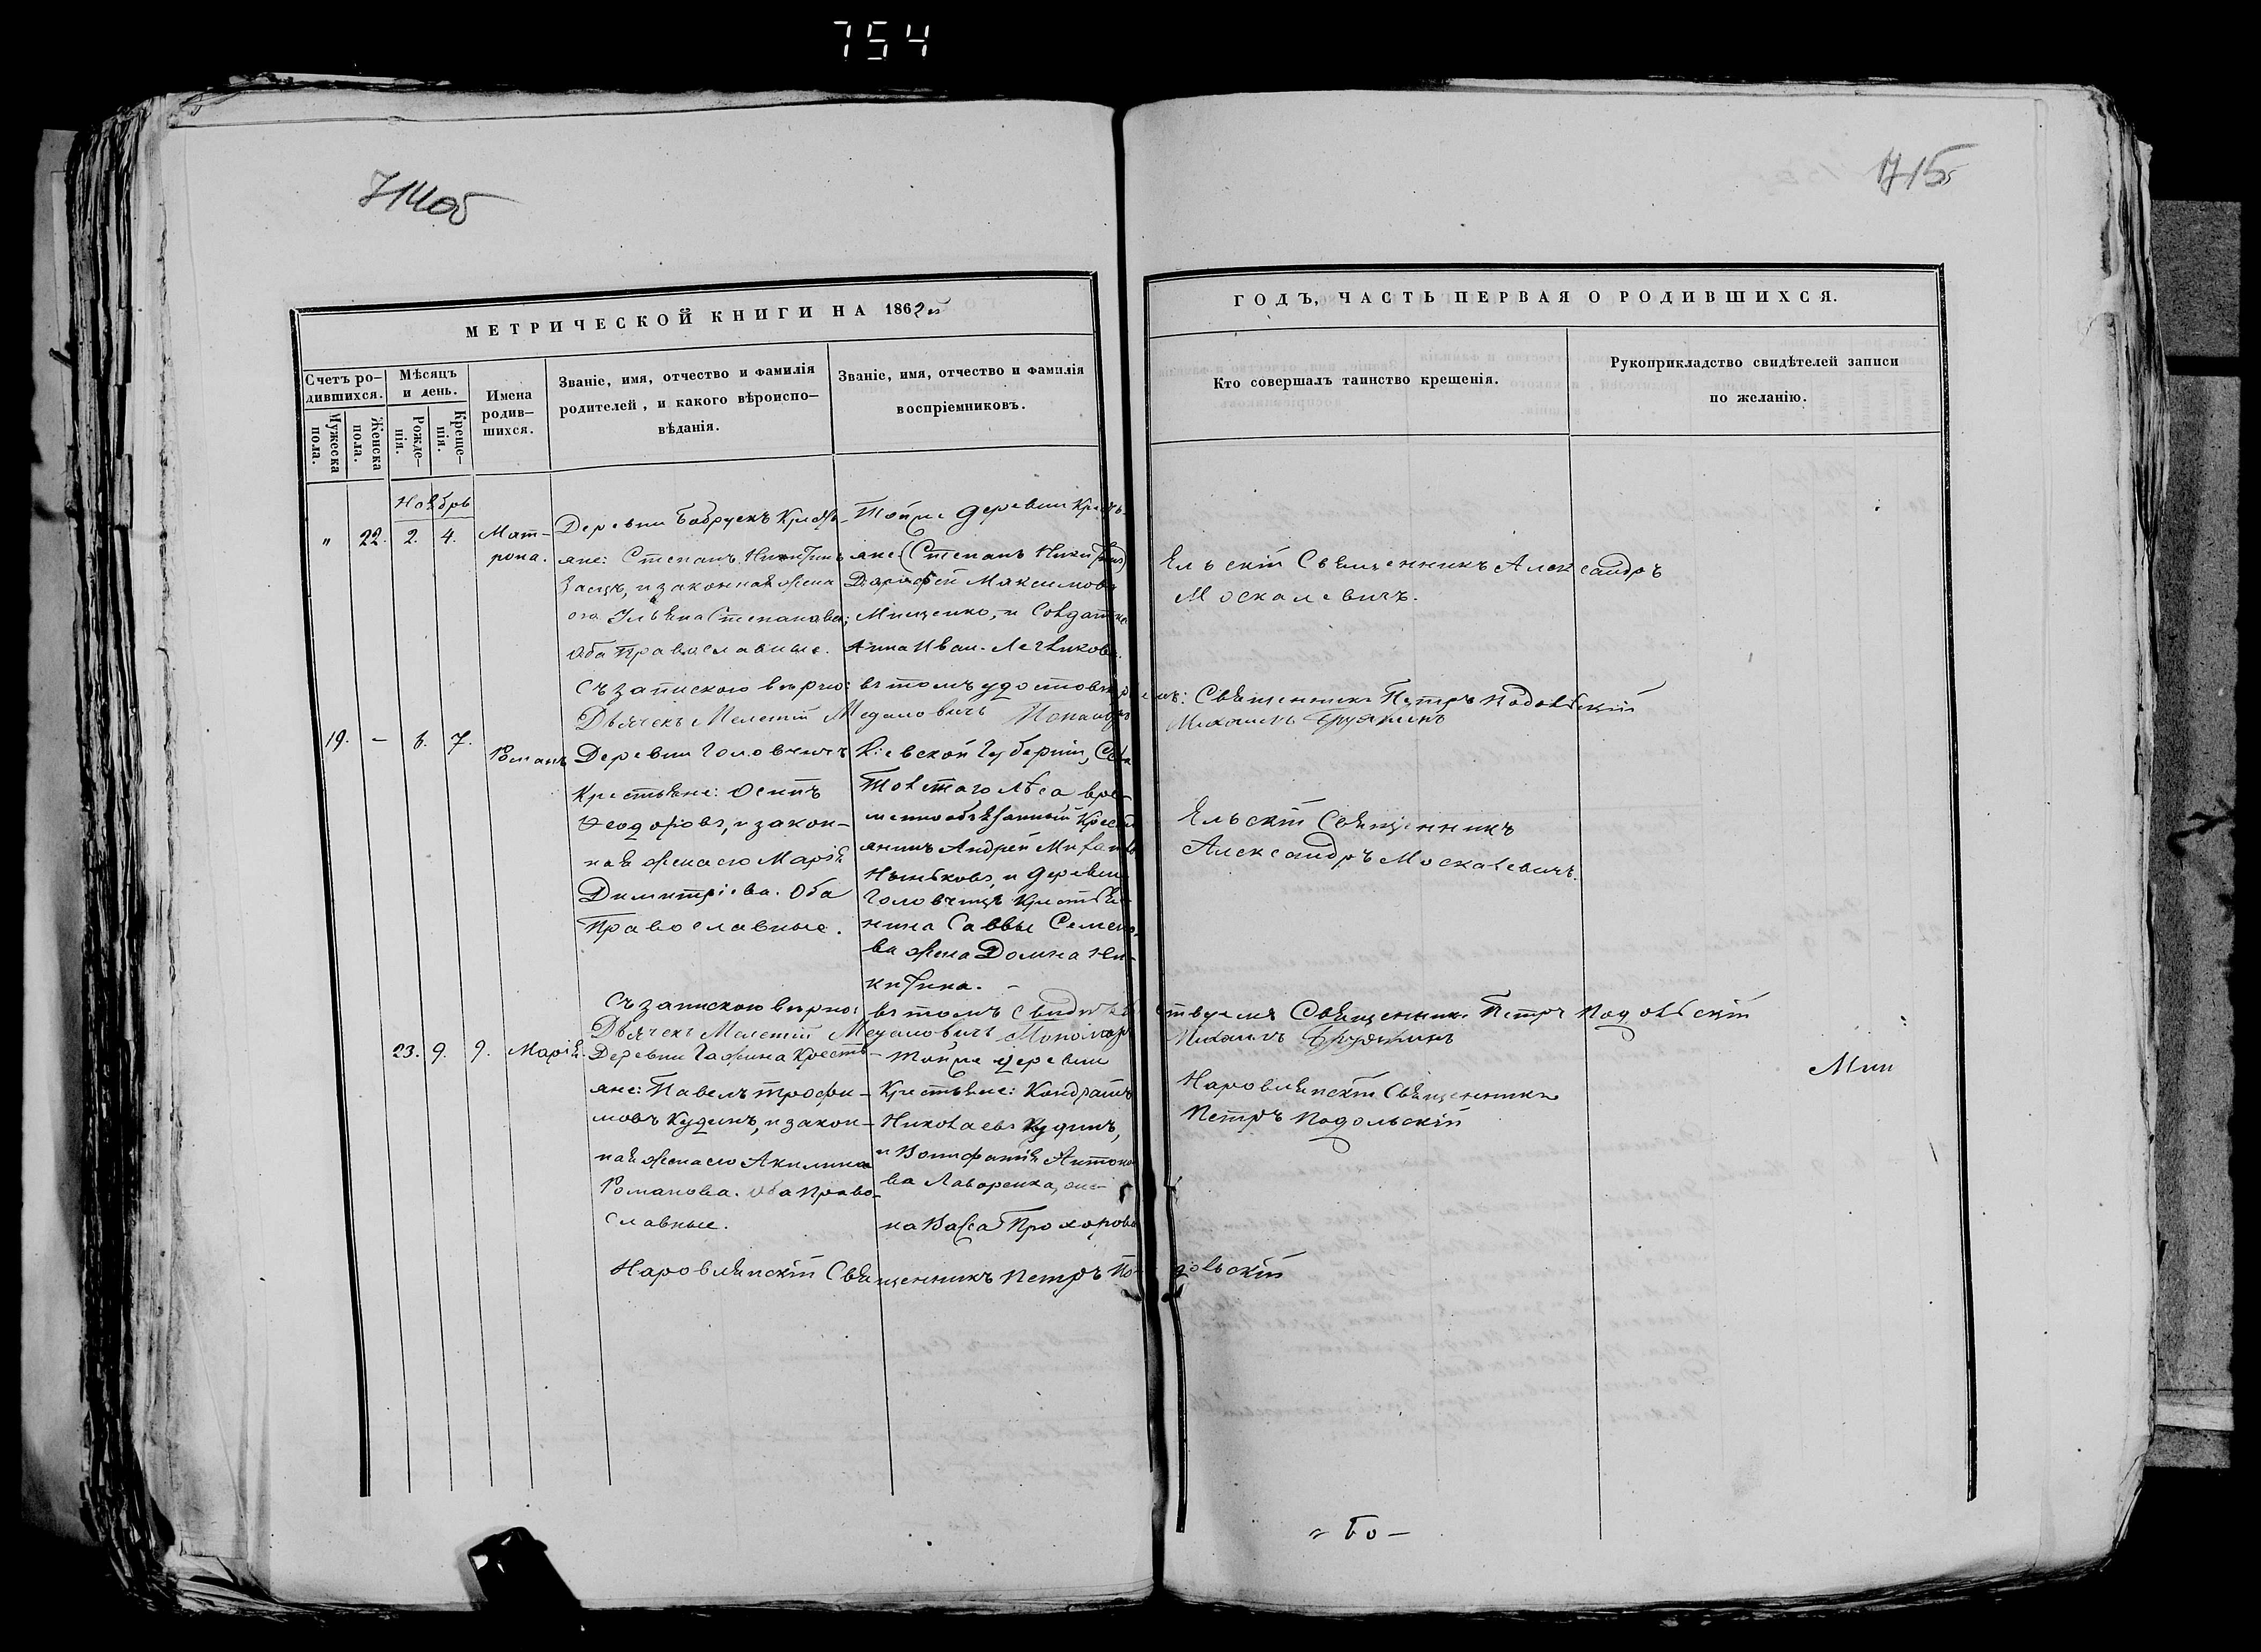 754
714об
715
МЕТРИЧЕСКОЙ КНИГИ НА 1862й
ГОДЪ, ЧАСТЬ ПЕРВАЯ О РОДИВШИХСЯ.
Счетъ ро-
дившихся.
Мужеска
пола.
Женска
пола.
Мѣсяцъ
и день.
Рожде-
нія.
Креще-
нія.
Имена
родив-
шихся.
Званіе, имя, отчество и фамилія
родителей, и какого вѣроиспо-
вѣданія.
Званіе, имя, отчество и фамилія
воспріемниковъ.
Кто совершалъ таинство крещенія.
Рукоприкладство свидѣтелей записи
по желанію.
Ноябрь
" 22. 2. 4.
Мат-
рона.
Деревни Бобрускъ Кресть-
яне: Степанъ Никитинъ
Заецъ, и законная жена
его Ульяна Степанова;
оба Православные.
Тойже деревни Кресть-
яне (Степанъ Никитинъ)
Дорофей Максимовъ
Мищенко, и Солдатка
Анна Иван.
Ельскій Священникъ Александръ
Москалевичъ.
Съ запискою вѣрно: въ томъ удостовѣряемъ: Священникъ Петръ Подольскій
Дьячекъ Мелетій Пономарь Михаилъ
19. — 6. 7.
Романъ
Деревни Головчицъ
Крестьяне: Осипъ
Ѳеодоровъ, и закон-
ная жена его Марія
Димитріева. Оба
Православные.
Кіевской Губерніи, Села
Толстаго Лѣса вре-
меннообязанный Кресть-
янинъ Андрей
и деревни
Головчицъ Крестья-
нина Саввы Семено-
ва жена Домна Ни-
китина.
Ельскій Священникъ
Александръ Москалевичъ.
Съ запискою вѣрно: въ томъ свидѣтельствуемъ Священникъ Петръ Подольскій
Дьячекъ Мелетій Пономарь Михаилъ
23. 9. 9.
Марія.
Деревни Гажина Кресть-
яне: Павелъ Трофи-
мовъ Кудинъ, и закон-
ная жена его Акилина
Романова. Оба Право-
славные.
Тойже деревни
Крестьяне: Кондратъ
Николаевъ Кудинъ,
и Вонифатія Антоно-
ва Лаворенка, же-
на Васса Прохорова
Наровлянскій Священникъ
Петръ Подольскій
Мин
Наровлянскій Священникъ Петръ Подольскій